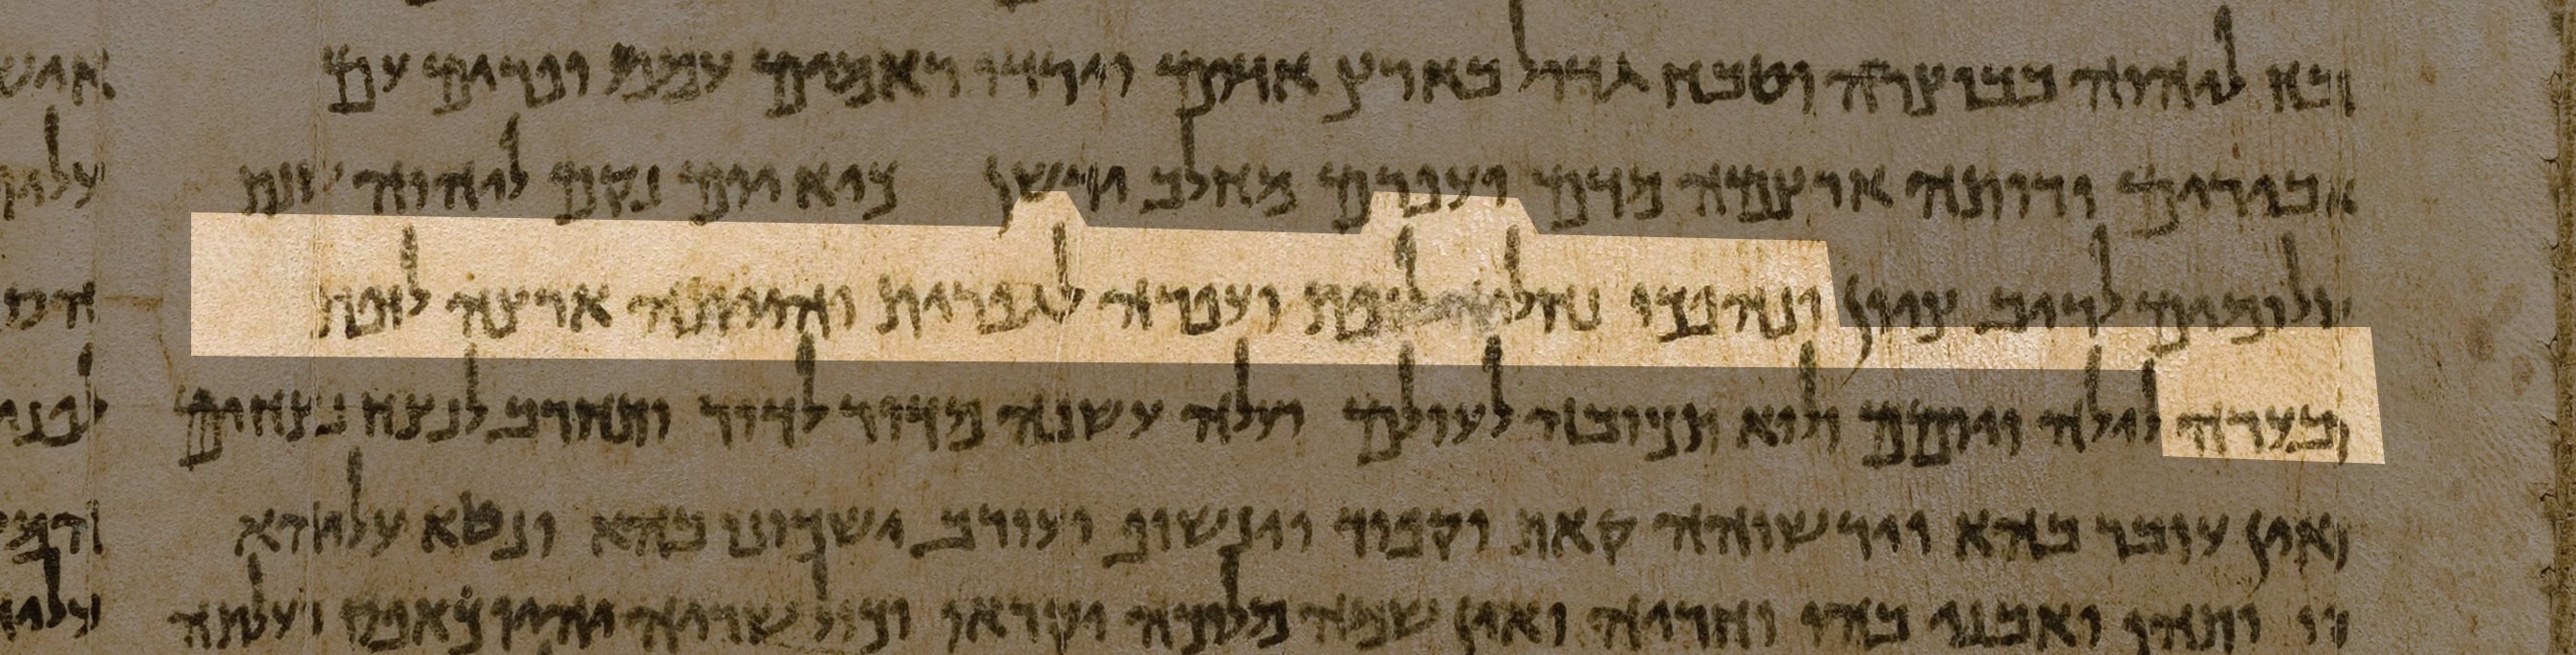 זבח ליהוה בבוצרה וטבח גדול בארץ אדום וירדו ראמים עמם ופרים עם
אבירים ורותה ארצמה מדם ועפרם מחלב ידשן כיא יום נקם ליהוה שנת
שלומים לריב ציון ונהפכו נחליה לזפת ועפרה לגפרית והייתה ארצה לזפת
ובערה לילה ויומם ולוא תכבה לעולם תעלה עשנה מדור לדור ותחרב לנצח נצחים
ואין עובר בהא וירשוהה קאת וקפוד וינשוף ועורב ישכונו בהא ונטא עליהא
קו תוהו ואבני בוהו וחוריה ואין שמה מלוכה יקראו וכול שריה יהיו כאפס ועלתה